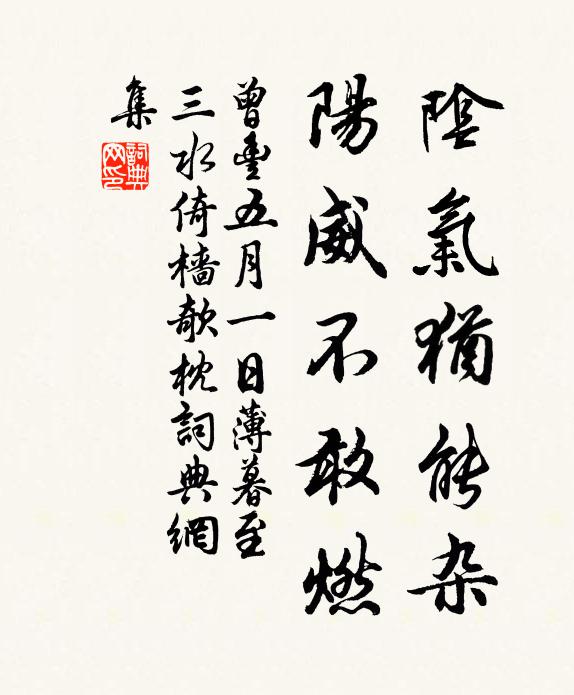 陰氣猶能杂
陽威不敢燃
曾豐五月一日薄暮至
三水倚檣欹枕詞典網
集
詞典
网印